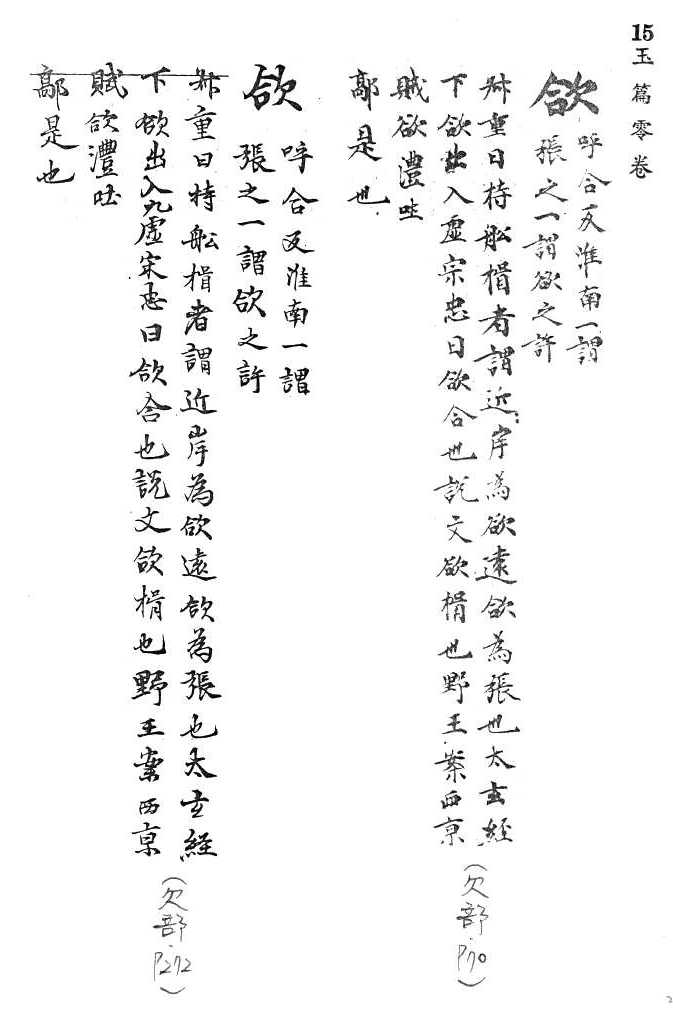 15 玉篇零卷
欱
呼合反淮南一謂
張之一謂欱之許
舛重曰持舩楫者謂近岸為欱遠欱為張也太玄經
下欱出入虛宗忠曰欱合也說文欱楫也野王案西京
賊欱澧吐
鄗是也
(欠部·P70)
欱
呼合反淮南一謂
張之一謂欱之許
舛重曰持舩楫者謂近岸為欱遠欱為張也太玄経
下欱出入九虛宋忠曰欱合也説文欱楫也野王案西京
賦欱澧吐
鄗是也
(欠部·P272)